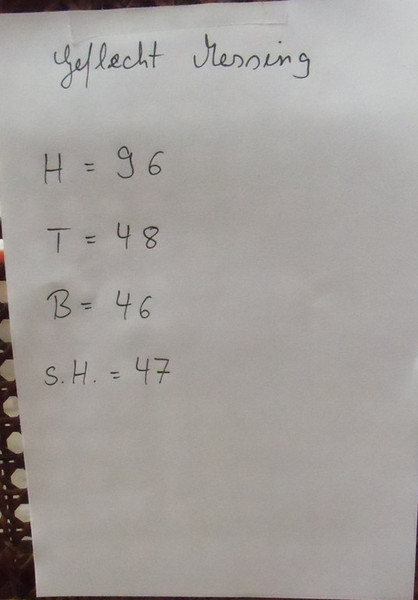 Geflecht Messing
H = 96
T = 48
B = 46
S.H. = 47